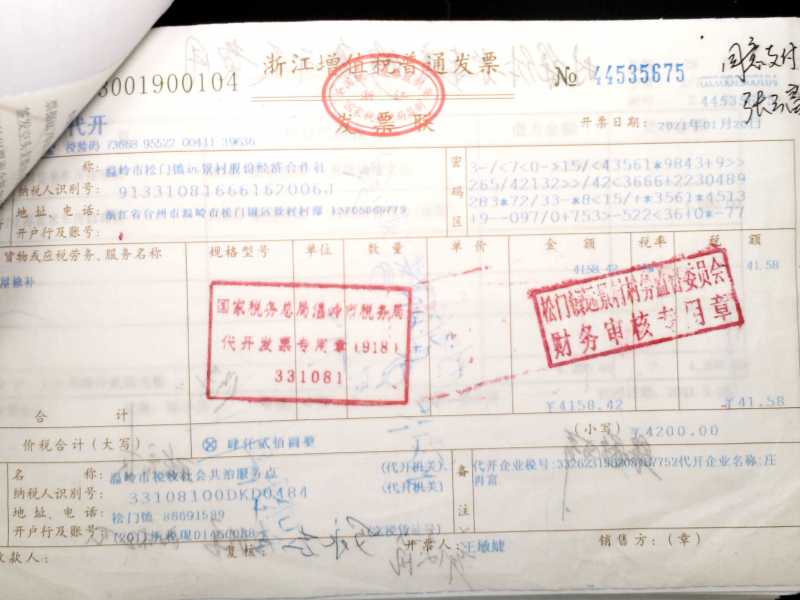 3001900104
浙江增值税普通发票
№ 44535675
同意支付
发票联
代开
校验码 73668 95522 00411 39636
开票日期: 2021年01月20日
称: 温岭市松门镇远景村股份经济合作社
纳税人识别号: 91331081666162006J
地址、电话:
开户行及账号:
密码区
3-/<7<0->15/<43561*9843+9>>
265/42132>>/42<3666+2230489
283*72/33-8<15/+*3561*4513
+9--097/0+753>-522<36+0*-77
货物或应税劳务、服务名称
规格型号
单位
数量
单价
金额
税率
税额
4158.42
41.58
国家税务总局温岭市税务局
代开发票专用章(918)
331081
松门镇远景村村务监督委员会
财务审核专用章
合计
¥4158.42
¥41.58
价税合计(大写)
肆仟贰佰圆整
(小写) ¥4200.00
名称: 温岭市税收社会共治服务点
(代开机关)
纳税人识别号: 33108100DKD0484
(代开机关)
地址、电话: 松门镇 86691589
开户行及账号:
备注
代开企业名称:庄
冉富
收款人:
复核:
开票人: 王敏婕
销售方:(章)